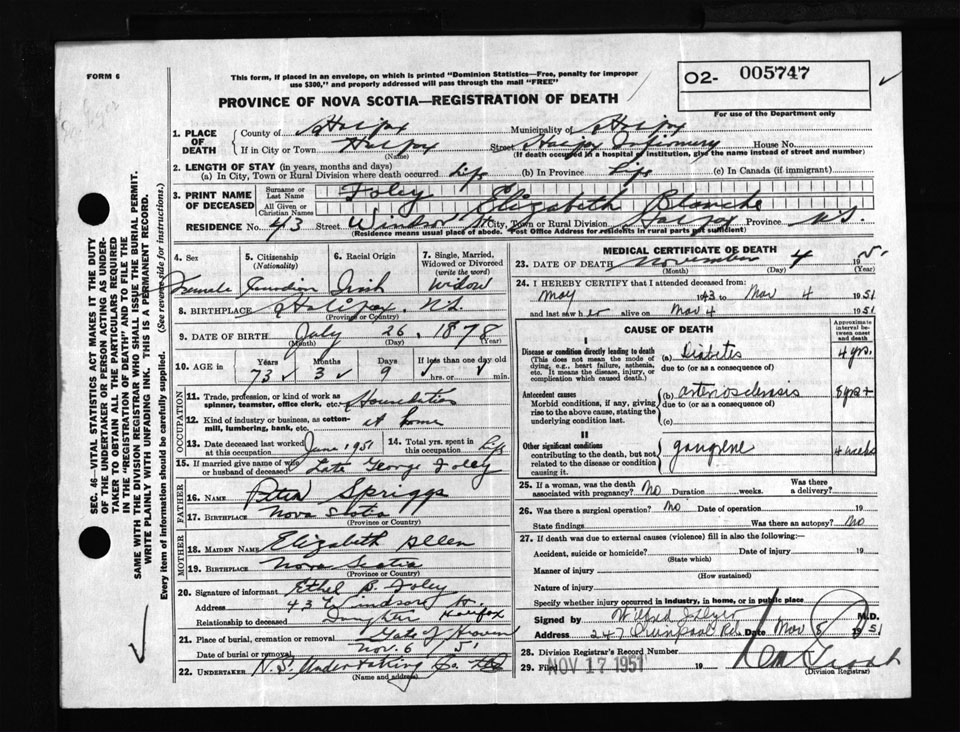 FORM 6
This form, if placed in an envelope, on which is printed "Dominion Statistics—Free, penalty for improper
use $300," and properly addressed will pass through the mail "FREE"
O2- 005747
For use of the Department only
PROVINCE OF NOVA SCOTIA—REGISTRATION OF DEATH
1. PLACE OF DEATH
County of Halifax Municipality of Halifax
If in City or Town Halifax (Name) Street Halifax Infirmary House No.
(If death occurred in a hospital or institution, give the name instead of street and number)
2. LENGTH OF STAY (in years, months and days)
(a) In City, Town or Rural Division where death occurred Life (b) In Province Life (c) In Canada (if immigrant)
3. PRINT NAME OF DECEASED
Surname or Last Name Foley
All Given or Christian Names Elizabeth Blanche
RESIDENCE No. 43 Street Windsor St City, Town or Rural Division Halifax Province N.S.
(Residence means usual place of abode. Post Office Address for residents in rural parts not sufficient)
4. Sex Female
5. Citizenship (Nationality) Canadian
6. Racial Origin Irish
7. Single, Married, Widowed or Divorced (write the word) Widow
8. BIRTHPLACE Halifax, N.S.
(Province or Country)
9. DATE OF BIRTH July 26 1878
(Month) (Day) (Year)
10. AGE IN Years 73 Months 3 Days 9 If less than one day old hrs. or min.
OCCUPATION
11. Trade, profession, or kind of work as spinner, teamster, office clerk, etc. Housduties
12. Kind of industry or business, as cotton-mill, lumbering, bank, etc. at home
13. Date deceased last worked at this occupation June 1951
14. Total yrs. spent in this occupation Life
15. If married give name of wife or husband of deceased Late George Foley
FATHER
16. Name Peter Spriggs
17. BIRTHPLACE Nova Scotia
(Province or Country)
MOTHER
18. MAIDEN NAME Elizabeth Allen
19. BIRTHPLACE Nova Scotia
(Province or Country)
20. Signature of informant Ethel B. Foley
Address 43 Windsor St. Halifax
Relationship to deceased Daughter
21. Place of burial, cremation or removal Gate of Heaven
Date of burial or removal Nov. 6 51
22. UNDERTAKER N.S. Undertaking Co. Ltd
(Name and address)
MEDICAL CERTIFICATE OF DEATH
23. DATE OF DEATH November 4 195
(Month) (Day) (Year)
24. I HEREBY CERTIFY that I attended deceased from
May 1943 to Nov 4 1951
and last saw her alive on Nov 4 1951
CAUSE OF DEATH
Approximate interval between onset and death
I
Disease or condition directly leading to death
(This does not mean the mode of dying, e.g., heart failure, asthenia, etc. It means the disease, injury, or complication which caused death.)
(a) Diabetes 4 yrs.
due to (or as a consequence of)
Antecedent causes
Morbid conditions, if any, giving rise to the above cause, stating the underlying condition last.
(b) arteriosclerosis 8 yrs +
due to (or as a consequence of)
(c)
II
Other significant conditions
contributing to the death, but not related to the disease or condition causing it.
gangrene 4 weeks
25. If a woman, was the death associated with pregnancy? No Duration weeks. Was there a delivery?
26. Was there a surgical operation? No Date of operation 19
State findings Was there an autopsy? No
27. If death was due to external causes (violence) fill in also the following:—
Accident, suicide or homicide? Date of injury 19
(State which)
Manner of injury
(How sustained)
Nature of injury
Specify whether injury occurred in industry, in home, or in public place
Signed by Wilfred J Dyer M.D.
Address 247 Quinpool Rd. Date Nov 5 1951
28. Division Registrar's Record Number
29. Filed NOV 17 1951 19
(Division Registrar)
SEC. 46—VITAL STATISTICS ACT MAKES IT THE DUTY
OF THE UNDERTAKER OR PERSON ACTING AS UNDER-
TAKER TO OBTAIN ALL THE PARTICULARS REQUIRED
IN THE "REGISTRATION OF DEATH" AND TO FILE THE
SAME WITH THE DIVISION REGISTRAR WHO SHALL ISSUE THE BURIAL PERMIT.
WRITE PLAINLY WITH UNFADING INK. THIS IS A PERMANENT RECORD.
Every item of information should be carefully supplied. (See reverse side for instructions.)